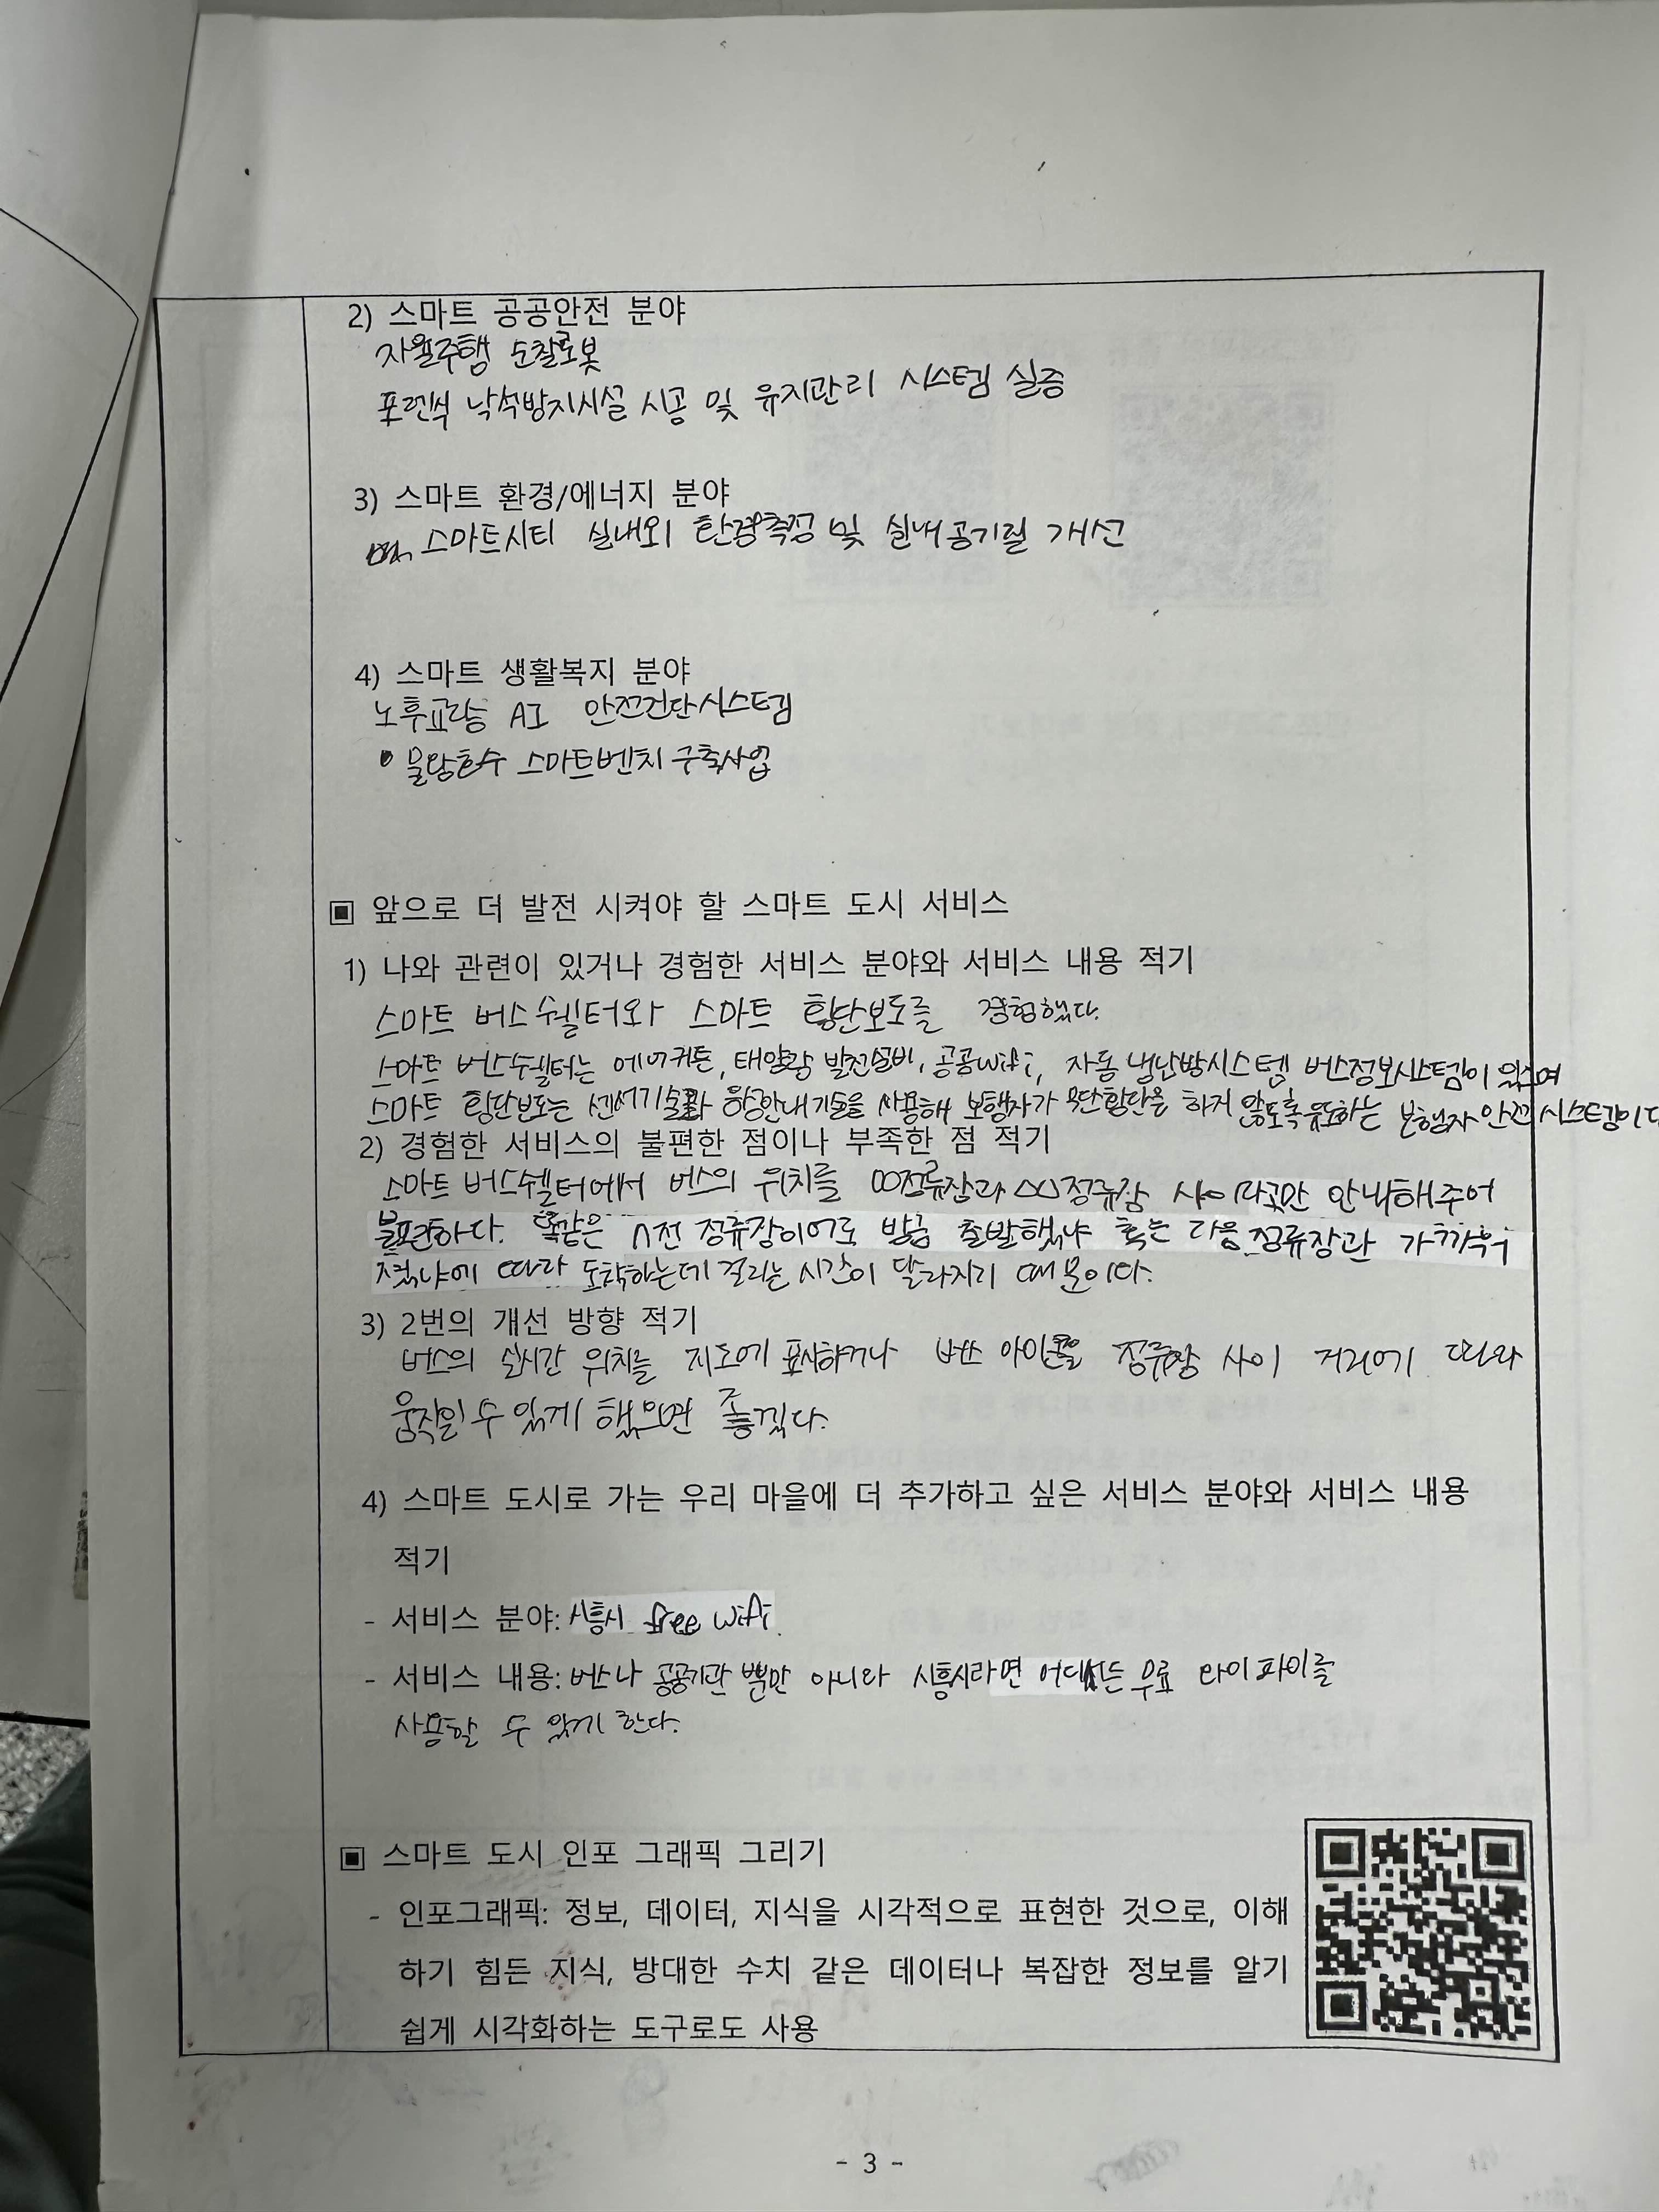 2) 스마트 공공안전 분야
자율주행 순찰로봇
포렌식 낙석방지시설 시공 및 유지관리 시스템 실증
3) 스마트 환경/에너지 분야
스마트시티 실내외 환경측정 및 실내공기질 개선
4) 스마트 생활복지 분야
노후교량 AI 안전진단시스템
• 물왕호수 스마트벤치 구축사업
▣ 앞으로 더 발전 시켜야 할 스마트 도시 서비스
1) 나와 관련이 있거나 경험한 서비스 분야와 서비스 내용 적기
스마트 버스쉘터와 스마트 횡단보도를 경험했다.
스마트 버스쉘터는 에어커튼, 태양광 발전설비, 공공wifi, 자동 냉난방시스템 버스정보시스템이 있으며
스마트 횡단보도는 센서기술과 음성안내기술을 사용해 보행자가 무단횡단을 하지 않도록 유도하는 보행자 안전 시스템이다
2) 경험한 서비스의 불편한 점이나 부족한 점 적기
스마트 버스쉘터에서 버스의 위치를 ㅁㅁ정류장과 △△정류장 사이라고만 안내해주어
불편하다. 똑같은 n전 정류장이어도 방금 출발했냐 혹은 다음 정류장과 가까워
졌냐에 따라 도착하는데 걸리는 시간이 달라지기 때문이다.
3) 2번의 개선 방향 적기
버스의 실시간 위치를 지도에 표시하거나 버스 아이콘을 정류장 사이 거리에 따라
움직일 수 있게 했으면 좋겠다.
4) 스마트 도시로 가는 우리 마을에 더 추가하고 싶은 서비스 분야와 서비스 내용
적기
- 서비스 분야: 시흥시 free wifi
- 서비스 내용: 버스나 공공기관 뿐만 아니라 시흥시라면 어디서든 무료 와이파이를
사용할 수 있게 한다.
▣ 스마트 도시 인포 그래픽 그리기
- 인포그래픽: 정보, 데이터, 지식을 시각적으로 표현한 것으로, 이해
하기 힘든 지식, 방대한 수치 같은 데이터나 복잡한 정보를 알기
쉽게 시각화하는 도구로도 사용
- 3 -